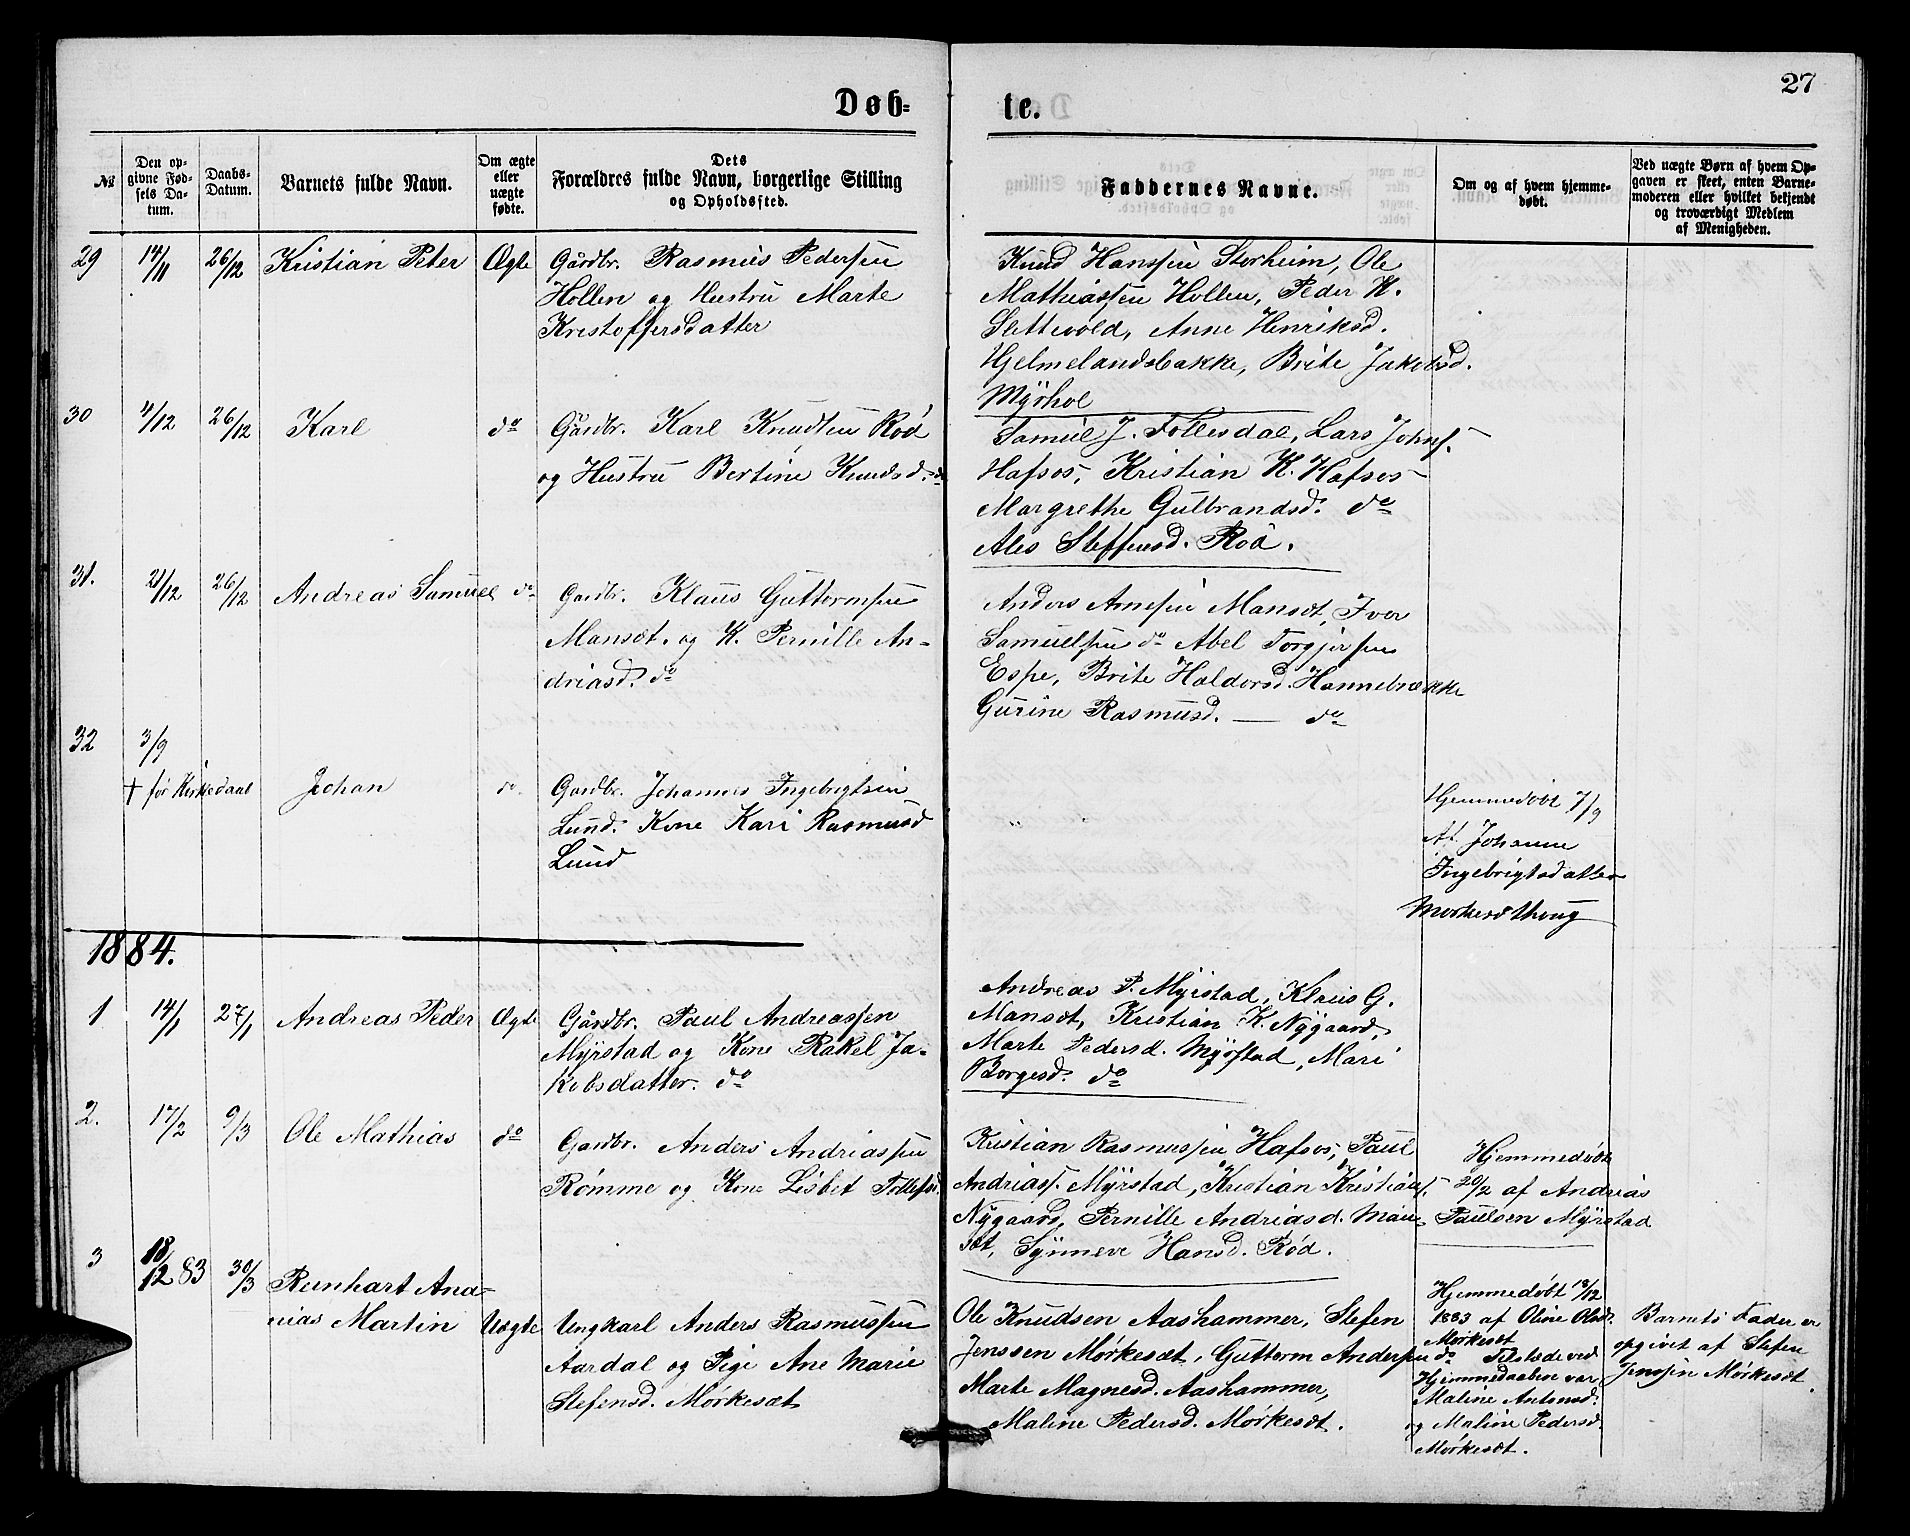 27
Døb=
te.
№
Den op-
givne Fød-
sels Da-
tum.
Daabs-
Datum.
Barnets fulde Navn.
Om ægte
eller
uægte
fødte.
Dets
Forældres fulde Navn, borgerlige Stilling
og Opholdssted.
Faddernes Navne.
Om og af hvem hjemme-
døbt.
Ved uægte Børn af hvem Op-
gaven er skeet, enten Barne-
moderen eller hvilket bekjendt
og troværdigt Medlem
af Menigheden.
29 14/11 26/12 Kristian Peter Ægte Gårdbr. Rasmus Pedersen
Hollen og Hustru Marte
Kristoffersdatter
Knud Hanssen Storheim, Ole
Mathiassen Hollen, Peder K.
Slettevold, Anne Henriksd.
Hjelmelandsbakke, Brite Jakobsd.
Myrhol
30 4/12 26/12 Karl do Gårdbr. Karl Knudsen Rød
og Hustru Bertine Knudsd. do
Samuel J. Follesdal, Lars Johns.
Hafsos, Kristian K. Hafsos
Margrethe Gulbrandsd. do
Ales Steffensd. Rød.
31. 21/12 26/12 Andreas Samuel do Gardbr. Klaus Guttormsen
Mansæt. og K. Pernille An-
driasd. do
Anders Arnesen Mansæt, Iver
Samuelsen do Abel Torgjersen
Espe, Brite Haldorsd. Hannebrekke
Gurine Rasmusd. — do
32 3/9
† før Kirkedaab Johan do. Gardbr. Johannes Ingebrigtsen
Lund. Kone Kari Rasmusd
Lund
"
Hjemmedøbt 7/9
Af Johanne
Ingebrigtsdatter
Mørkesæthoug
1884.
1 14/1 27/1 Andreas Peder Ægte Gårdbr. Paul Andreassen
Myrstad og Kone Rakel Ja-
kobsdatter. do
Andreas P. Myrstad, Klaus G.
Mansæt, Kristian K. Nygaard,
Marte Pedersd. Myrstad, Mari
Borgesd. do
2. 17/2 9/3 Ole Mathias do Gardbr. Anders Andriassen
Rømme og Kone Lisbet Tollefsd.
Kristian Rasmussen Hafsos, Paul
Andriass. Myrstad, Kristian Kristians.
Nygaard, Pernille Andriasd. Man-
sæt, Synneve Hansd. Rød.
Hjemmedøbt
20/2 af Andrias
Paulsen Myrstad
3 18/12 83 30/3 Reinhart Ana-
nias Martin Uægte Ungkarl Anders Rasmussen
Aardal og Pige Ane Marie
Stefensd. Mørkesæt
Ole Knudsen Aashammer, Stefen
Jenssen Mørkesæt, Guttorm Andersen do
Marte Magnesd. Aashammer,
Maline Pedersd. Mørkesæt.
Hjemmedøbt 18/12
1883 af Oline Olsd.
Mørkesæt
Tilstede ved
Hjemmedaaben var
Maline Antonsd.
og Maline Pedersd.
Mørkesæt.
Barnets Fader er
opgivet af Stefen
Jenssen Mørkesæt.